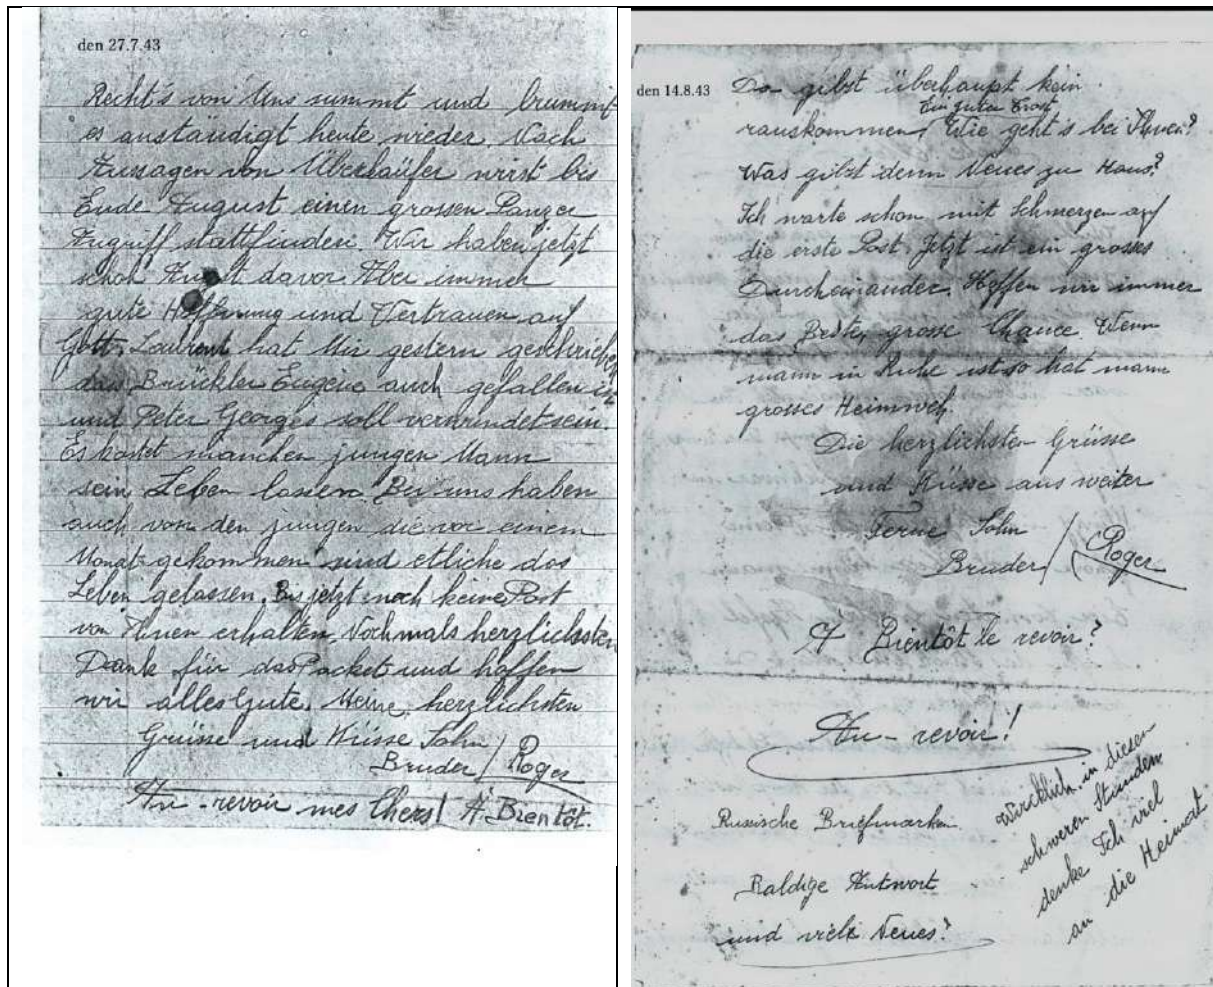 den 27.7.43
Recht's von Uns summt und brummt
es anständigt heute wieder. Nach
Aussagen von Überläufer wirst bis
Ende August einen grossen Panzer
Angriff stattfinden. Wir haben jetzt
schon Angst davor. Aber immer
gute Hoffnung und Vertrauen auf
Gott. Laurent hat Mir gestern geschrieben
das Brückler Eugène auch gefallen ist
und Peter Georges soll verwundet sein.
Es kostet manchen jungen Mann
sein Leben lassen. Bei uns haben
auch von den jungen die vor einem
Monat gekommen sind etliche das
Leben gelassen. Bis jetzt noch keine Post
von Ihnen erhalten. Nochmals herzlichsten
Danke für das Packet und hoffen
wir alles Gute. Meine herzlichsten
Grüsse und Küsse Sohn
Bruder / Roger
Au-revoir mes Chers! A Bientôt.
den 14.8.43
Da gibst überhaupt kein
Ein guten Trost
rauskommen, Wie geht's bei Ihnen?
Was gibst denn Neues zu Haus?
Ich warte schon mit Schmerzen auf
die erste Post. Jetzt ist ein grosses
Durcheinander. Hoffen wir immer
das Beste, grosse Chance. Wenn
mann in Ruhe ist so hat mann
grosses Heimweh.
Die herzlichsten Grüsse
und Küsse aus weiter
Ferne Sohn
Bruder / Roger
A Bientôt le revoir?
Au-revoir!
Russische Briefmarken
Baldige Antwort
und viele Neues?
Wircklich in diesen
schweren Stunden
denke Ich viel
an die Heimat